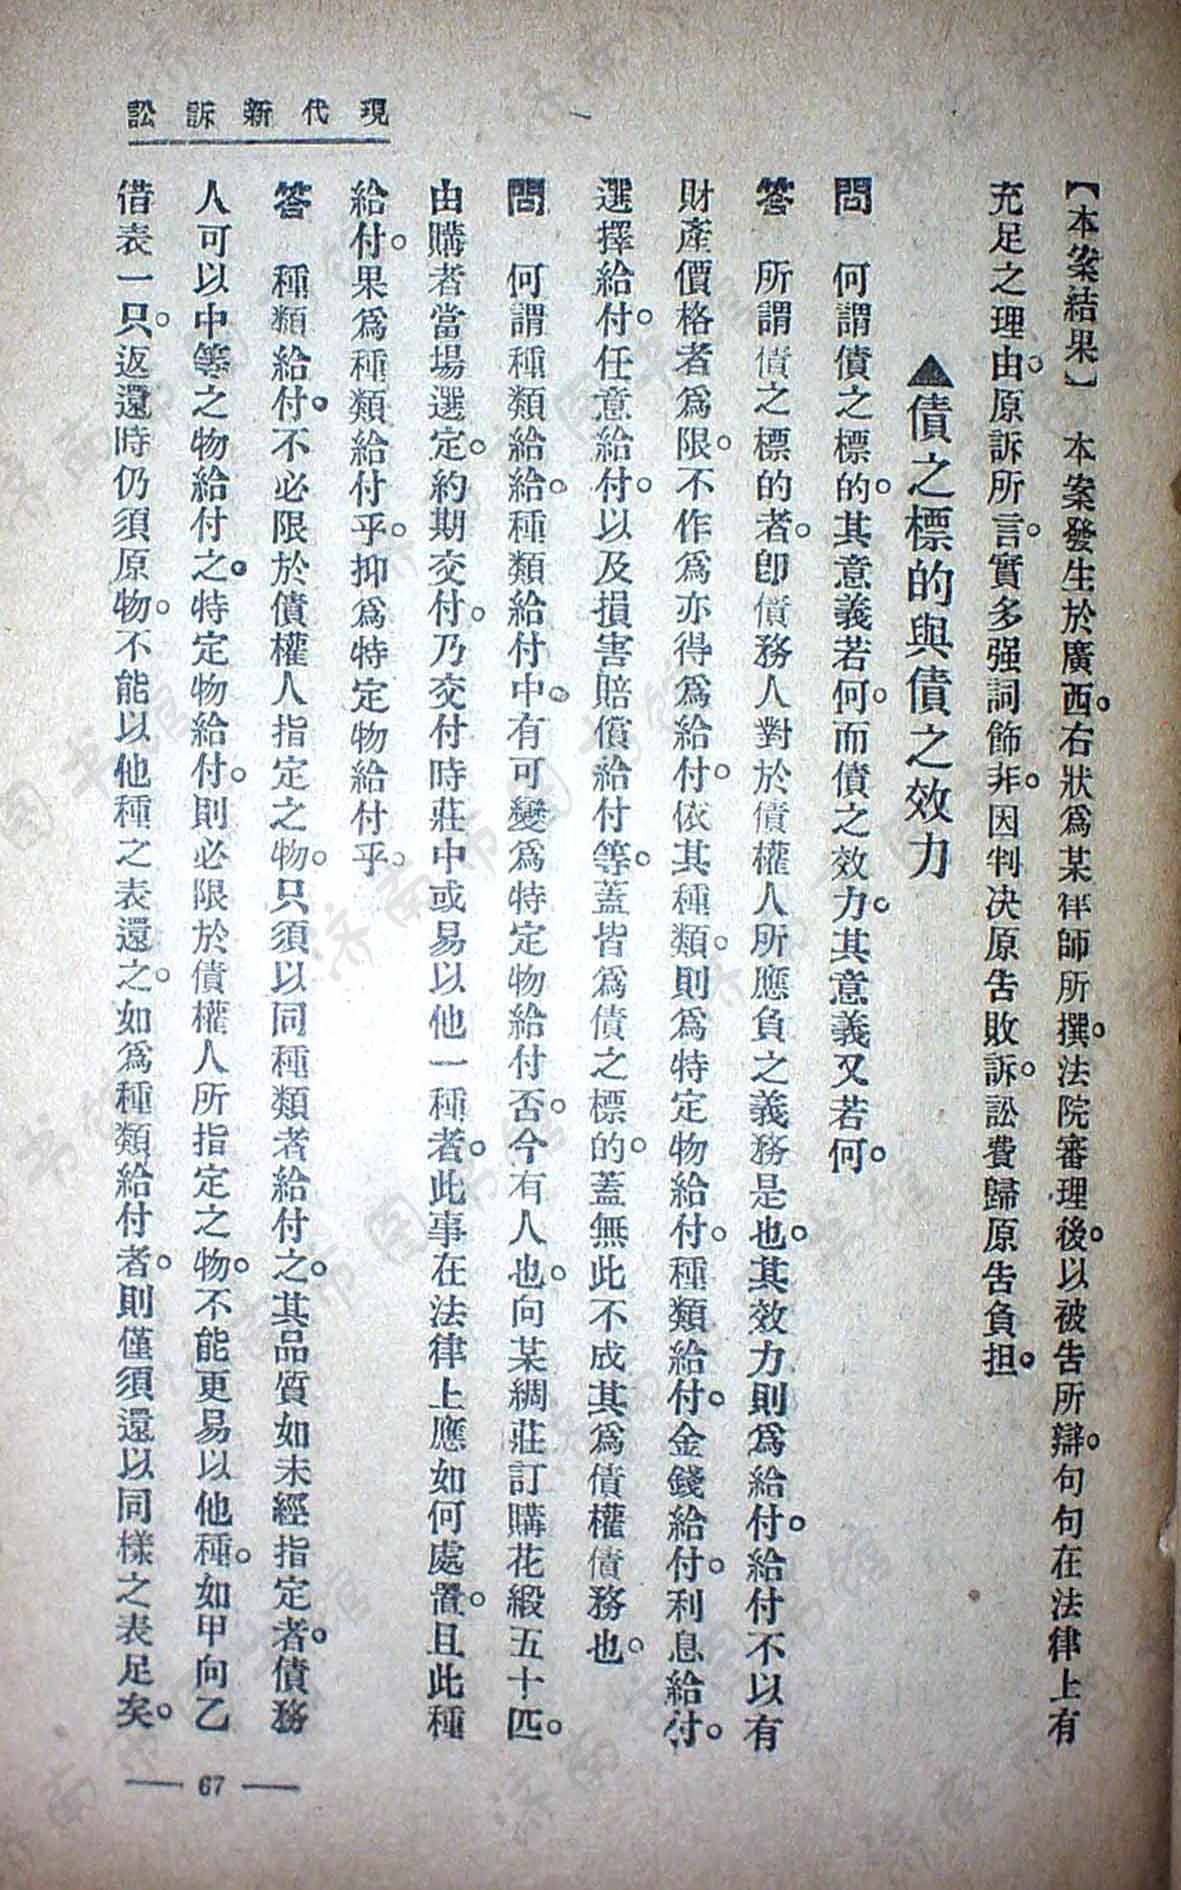 現代新訴訟
【本案結果】　本案發生於廣西。右狀爲某律師所撰。法院審理後。以被告所辯。句句在法律上有
充足之理由。原訴所言。實多强詞飾非。因判决原告敗訴。訟費歸原告負担。
▲債之標的與債之效力
問　何謂債之標的。其意義若何。而債之效力。其意義又若何。
答　所謂債之標的者。卽債務人對於債權人所應負之義務是也。其效力則爲給付。給付不以有
財產價格者爲限。不作爲亦得爲給付。依其種類。則爲特定物給付。種類給付。金錢給付。利息給付。
選擇給付。任意給付。以及損害賠償給付等。蓋皆爲債之標的。蓋無此不成其爲債權債務也。
問　何謂種類給給。種類給付中。有可變爲特定物給付否。今有人也。向某綢莊訂購花緞五十匹。
由購者當場選定。約期交付。乃交付時莊中或易以他一種者。此事在法律上應如何處置。且此種
給付。果爲種類給付乎。抑爲特定物給付乎。
答　種類給付。不必限於債權人指定之物。只須以同種類者給付之。其品質如未經指定者。債務
人可以中等之物給付之。特定物給付。則必限於債權人所指定之物。不能更易以他種。如甲向乙
借表一只。返還時仍須原物。不能以他種之表還之。如爲種類給付者。則僅須還以同樣之表足矣。
67
济南市图书馆